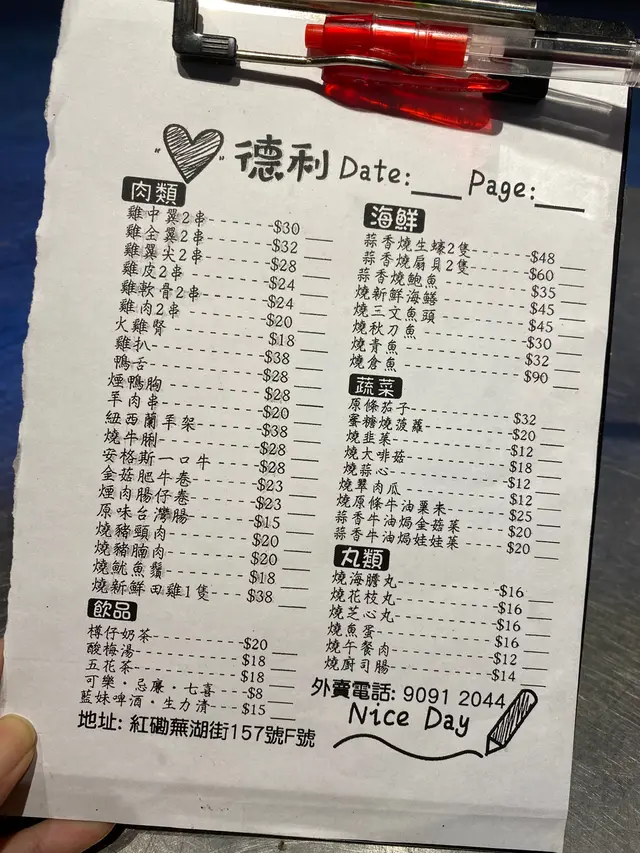 德利 Date:___ Page:___
肉類
雞中翼2串------$30 ___
雞全翼2串------$32 ___
雞翼尖2串------$28 ___
雞皮2串------$24 ___
雞軟骨2串------$24 ___
雞肉2串------$20 ___
火雞腎------$18 ___
雞扒------$38 ___
鴨舌------$28 ___
煙鴨胸------$28 ___
羊肉串------$20 ___
紐西蘭羊架------$38 ___
燒牛脷------$28 ___
安格斯一口牛------$28 ___
金菇肥牛卷------$23 ___
煙肉腸仔卷------$23 ___
原味台灣腸------$15 ___
燒豬頸肉------$20 ___
燒豬腩肉------$20 ___
燒魷魚鬚------$18 ___
燒新鮮田雞1隻------$38 ___
飲品
樽仔奶茶------$20 ___
酸梅湯------$18 ___
五花茶------$18 ___
可樂·忌廉·七喜---$8 ___
藍妹啤酒·生力清---$15 ___
地址: 紅磡蕪湖街157號F號
海鮮
蒜香燒生蠔2隻------$48 ___
蒜香燒扇貝2隻------$60 ___
蒜香燒鮑魚------$35 ___
燒新鮮海鱔------$45 ___
燒三文魚頭------$45 ___
燒秋刀魚------$30 ___
燒青魚------$32 ___
燒倉魚------$90 ___
蔬菜
原條茄子------$32 ___
蜜糖燒菠蘿------$20 ___
燒韭菜------$12 ___
燒大啡菇------$18 ___
燒蒜心------$12 ___
燒翠肉瓜------$12 ___
燒原條牛油粟米------$25 ___
蒜香牛油焗金菇菜------$20 ___
蒜香牛油焗娃娃菜------$20 ___
丸類
燒海膽丸------$16 ___
燒花枝丸------$16 ___
燒芝心丸------$16 ___
燒魚蛋------$16 ___
燒午餐肉------$12 ___
燒廚司腸------$14 ___
外賣電話: 9091 2044
Nice Day